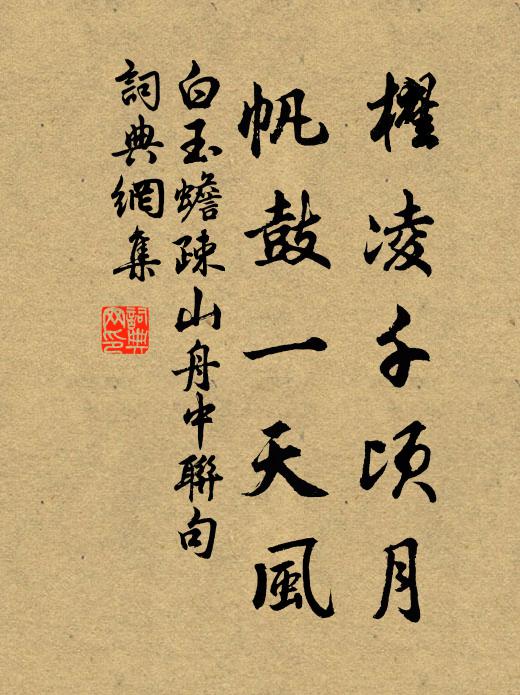 櫂凌千頃月
帆鼓一天風
白玉蟾疎山舟中聯句
詞典網集
詞典
网印